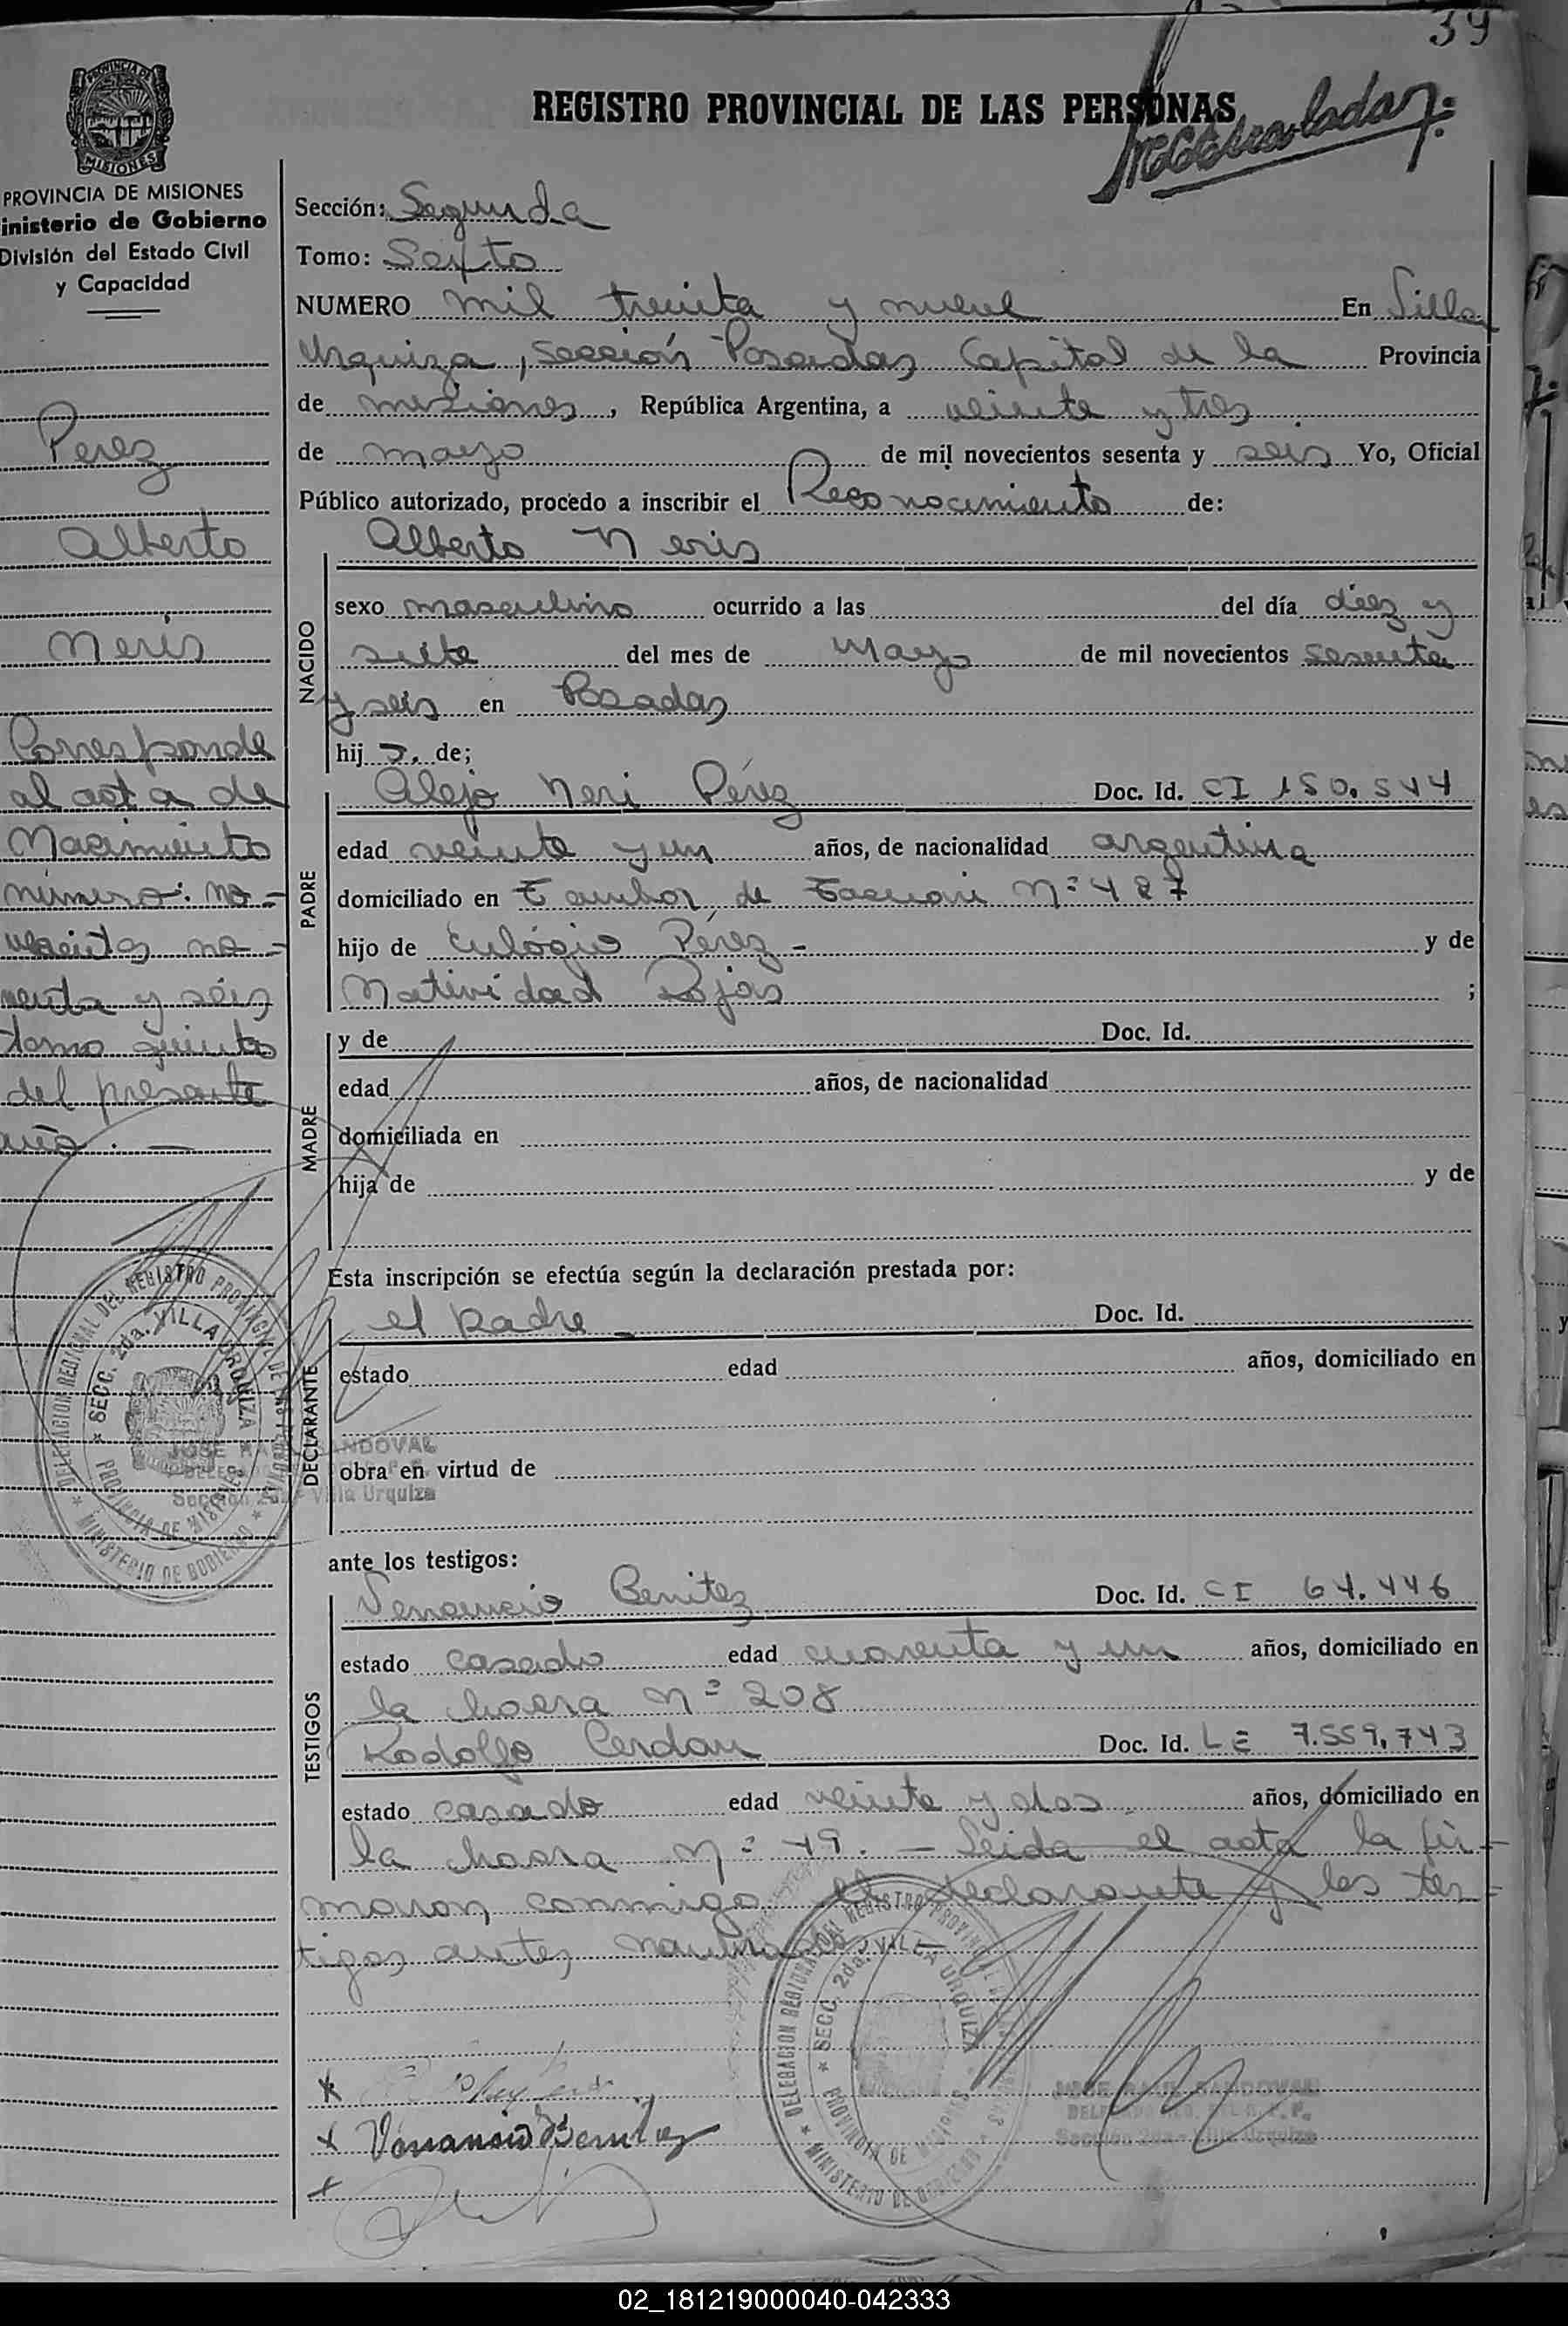 39
REGISTRO PROVINCIAL DE LAS PERSONAS
PROVINCIA DE
MISIONES
PROVINCIA DE MISIONES
inisterio de Gobierno
División del Estado Civil
y Capacidad
Perez
Alberto
Neris
Corresponde
al acta de
Nacimiento
número: no-
vecientos no-
venta y séis
tomo quinto
del presente
año. —
Sección: Segunda
Tomo: Sexto
NUMERO mil treinta y nueve En Villa
Urquiza, sección Posadas Capital de la Provincia
de misiones, República Argentina, a veinte y tres
de mayo de mil novecientos sesenta y seis Yo, Oficial
Público autorizado, procedo a inscribir el Reconocimiento de:
Alberto Neris
NACIDO
sexo masculino ocurrido a las del día diez y
siete del mes de Mayo de mil novecientos sesenta
y seis en Posadas
hijo. de;
PADRE
Alejo Neri Pérez Doc. Id. CI 150.544
edad veinte y un años, de nacionalidad argentina
domiciliado en Tambor de Tacuari Nº 487
hijo de Eulógio Pérez - y de
Natividad Rojas ;
MADRE
y de Doc. Id.
edad años, de nacionalidad
domiciliada en
hija de y de
Esta inscripción se efectúa según la declaración prestada por:
DECLARANTE
el padre Doc. Id.
estado edad años, domiciliado en
obra en virtud de
ante los testigos:
TESTIGOS
Venancio Benitez Doc. Id. CI 64.446
estado casado edad cuarenta y un años, domiciliado en
la chacra Nº 208
Rodolfo Cerdan Doc. Id. LE 7.559.743
estado casado edad veinte y dos años, domiciliado en
la chacra Nº 49. — Leida el acta la fir-
maron conmigo el declarante y los tes-
tigos antes nombrados
Venancio Benitez
DELEGACION REGIONAL DEL REGISTRO PROVINCIAL DE LAS PERSONAS
SECC. 2da. VILLA URQUIZA
PROVINCIA DE MISIONES
MINISTERIO DE GOBIERNO
JOSE RAUL SANDOVAL
Sección 2da - Villa Urquiza
DELEGACION REGIONAL DEL REGISTRO PROVINCIAL DE LAS PERSONAS
SECC. 2da. VILLA URQUIZA
PROVINCIA DE MISIONES
MINISTERIO DE GOBIERNO
JOSE RAUL SANDOVAL
Sección 2da - Villa Urquiza
02_181219000040-042333